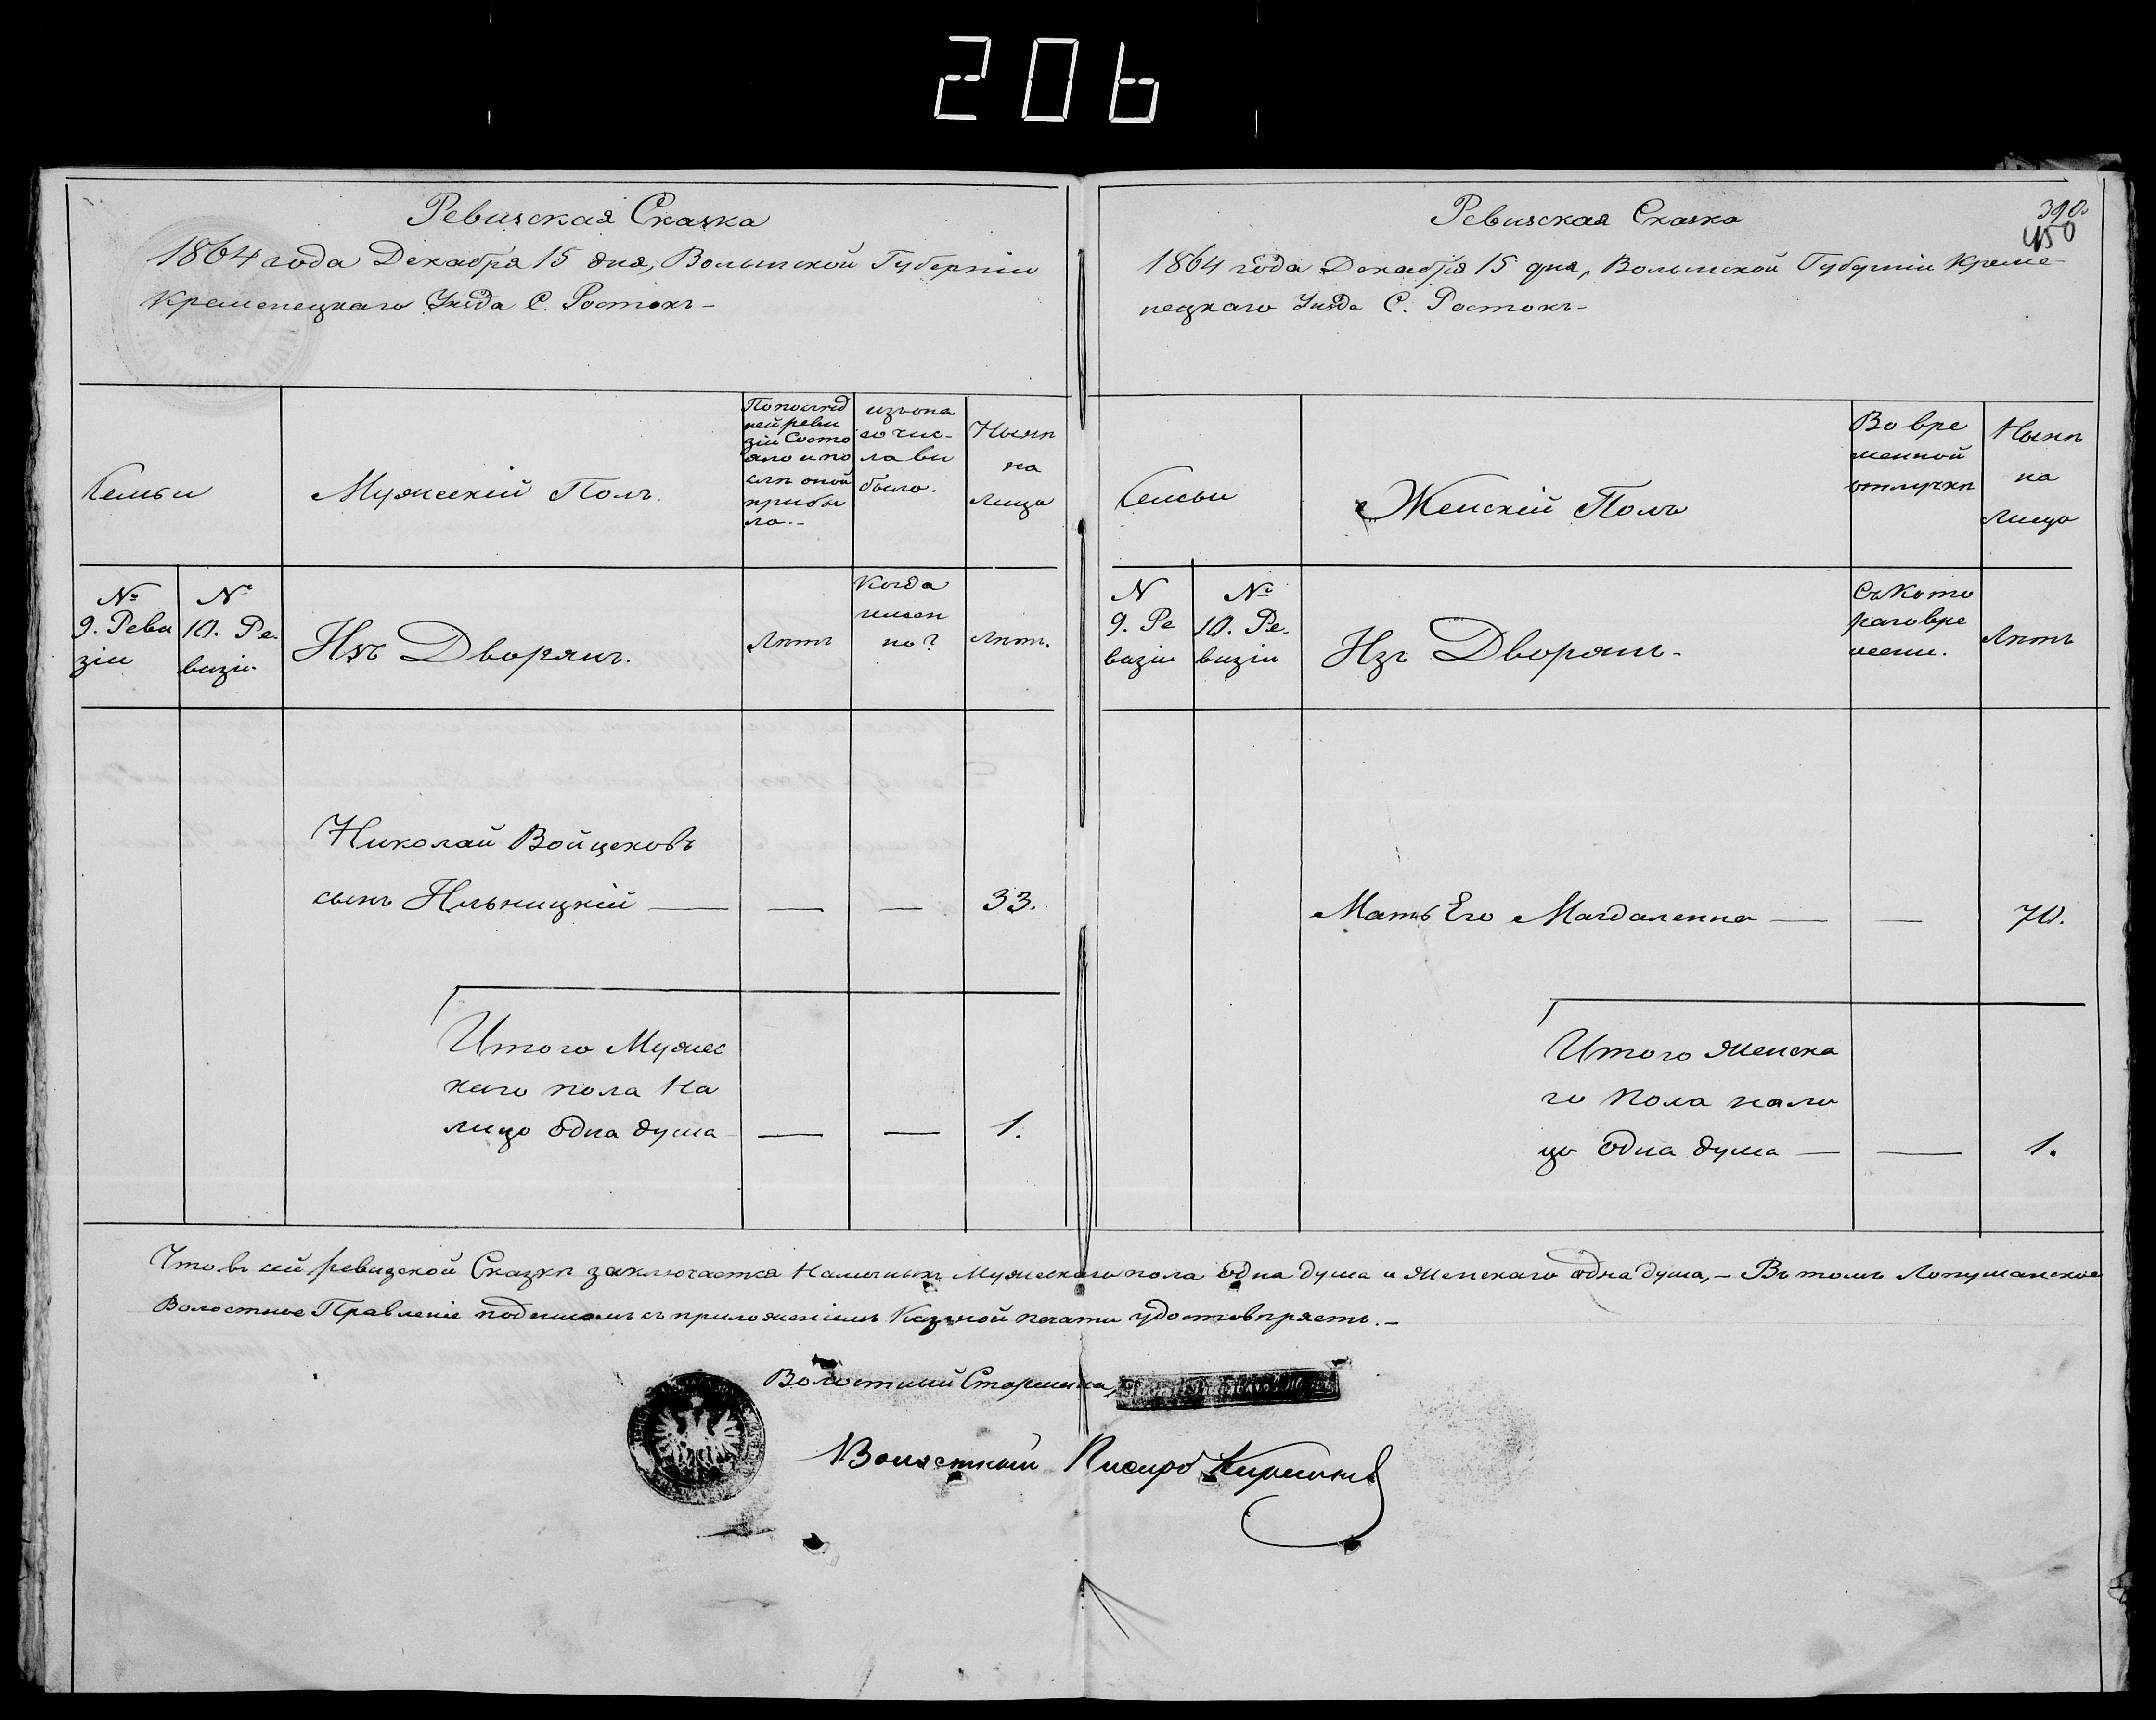 206
Ревизская Сказка
1864 года Декабря 15 дня, Волынской Губерніи
Кременецкаго Уѣзда С. Ростокъ-
Семьи
Мужескій Полъ.
По послѣд
ней реви
зіи Состо
яло и по
слѣ оной
прибы
ло.-
изъ она
го чис-
ла вы
было.
Нынѣ
на
лицо
№
9. Реви
зіи
№
10. Ре-
визіи
Изъ Дворянъ.
Лѣтъ
Когда
имен
но?
Лѣтъ.
Николай Войцеховъ
сынъ Ильницкій — — — 33.
Итого Мужес
каго пола На
лицо одна душа — — 1.
Ревизская Сказка
390
450
1864 года Декабря 15 дня, Волынской Губерніи Креме-
нецкаго Уѣзда С. Ростокъ-
Семьи
Женскій Полъ
Во вре
менной
отлучкѣ
Нынѣ
на
лицо
N
9. Ре
визіи
№
10. Ре-
визіи
Изъ Дворянъ-
Съ Кото
раго вре
мени.
Лѣтъ
Мать Его Магдаленна — — 70.
Итого Женска
го Пола нали
цо одна душа — — 1.
Что въ сей ревизской Сказкѣ заключается Наличныхъ Мужескаго пола одна душа и Женскаго одна душа,- Въ томъ Лопушанское
Волостное Правленіе подписомъ съ приложеніемъ Казенной печати удостовѣряетъ.-
Волостный Старшина,
Волостный Писарь